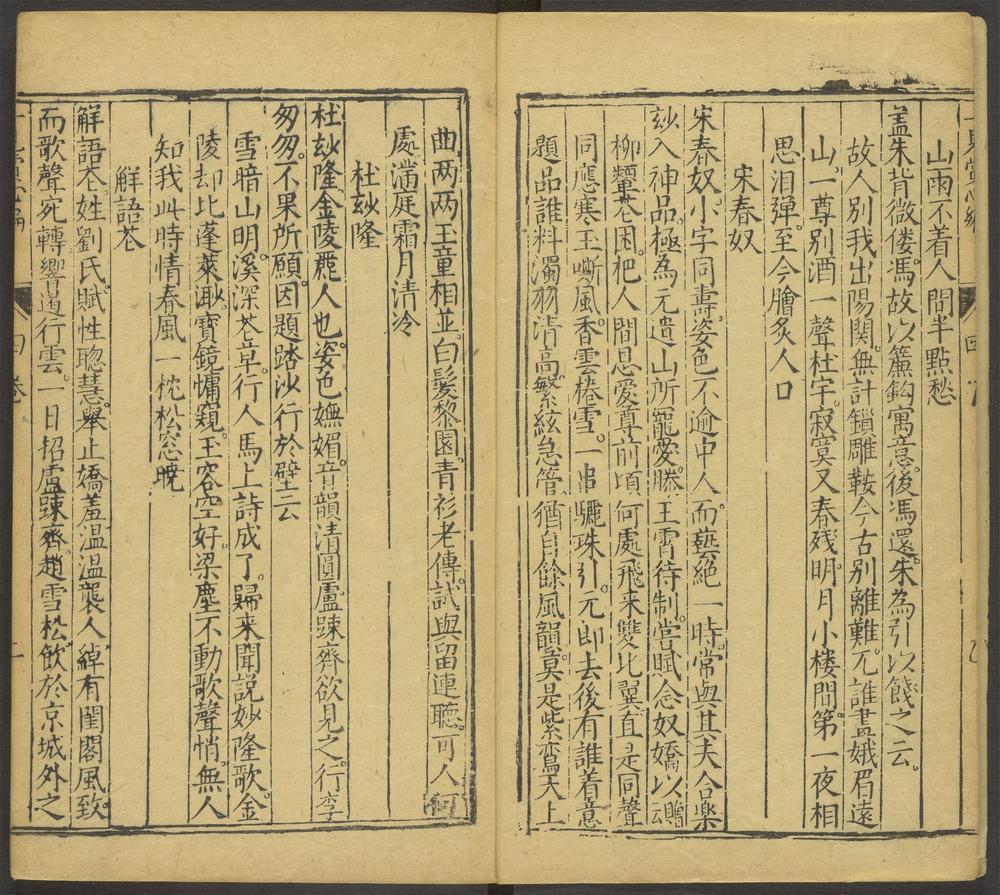 山雨不着人間半點愁
盖朱背微僂馮故以簾鈎寓意後馮還朱為引以餞之云
故人別我出陽関無計鎖雕鞍今古別離難兀誰畫娥眉遠
山一尊別酒一聲杜宇寂寞又春残明月小楼間第一夜相
思泪弹至今膾炙人口
宋春奴
宋春奴小字同壽姿色不逾中人而藝絶一時常與其夫合樂
玅入神品極為元遺山所寵愛滕王霄待制嘗賦念奴嬌以贈云
柳顰花困把人間恩爱尊前頃何處飛来雙比翼直是同聲
同應寒玉嘶風香雲捲雪一串驪珠引元郎去後有誰着意
題品誰料濁羽清高繁絃急管猶自餘風韻莫是紫鸞天上
曲两两玉童相並白髮黎園青衫老傳試與留連聽可人何
處滿庭霜月清冷
杜玅隆
杜玅隆金陵麗人也姿色嫵媚音韻清圓盧踈齊欲見之行李
匆匆不果所願因題踏沙行於壁云
雪暗山明溪深花草行人馬上詩成了歸来聞說妙隆歌金
陵却比蓬萊渺寶鏡慵窺玉容空好梁塵不動歌聲悄無人
知我此時情春風一枕松窓暁
解語花
解語花姓劉氏賦性聦慧舉止嬌羞温温襲人綽有閨閣風致
而歌聲宛轉響遏行雲一日招盧踈齊趙雪松飲於京城外之